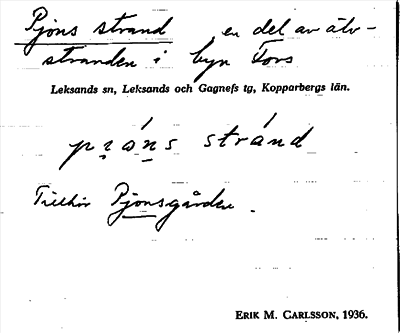 Pjöns strand, en del av älv-
stranden i byn Fors
Leksands sn, Leksands och Gagnefs tg, Kopparbergs län.
stránd
Tillhör Pjönsgården.
ERIK M. CARLSSON, 1936.